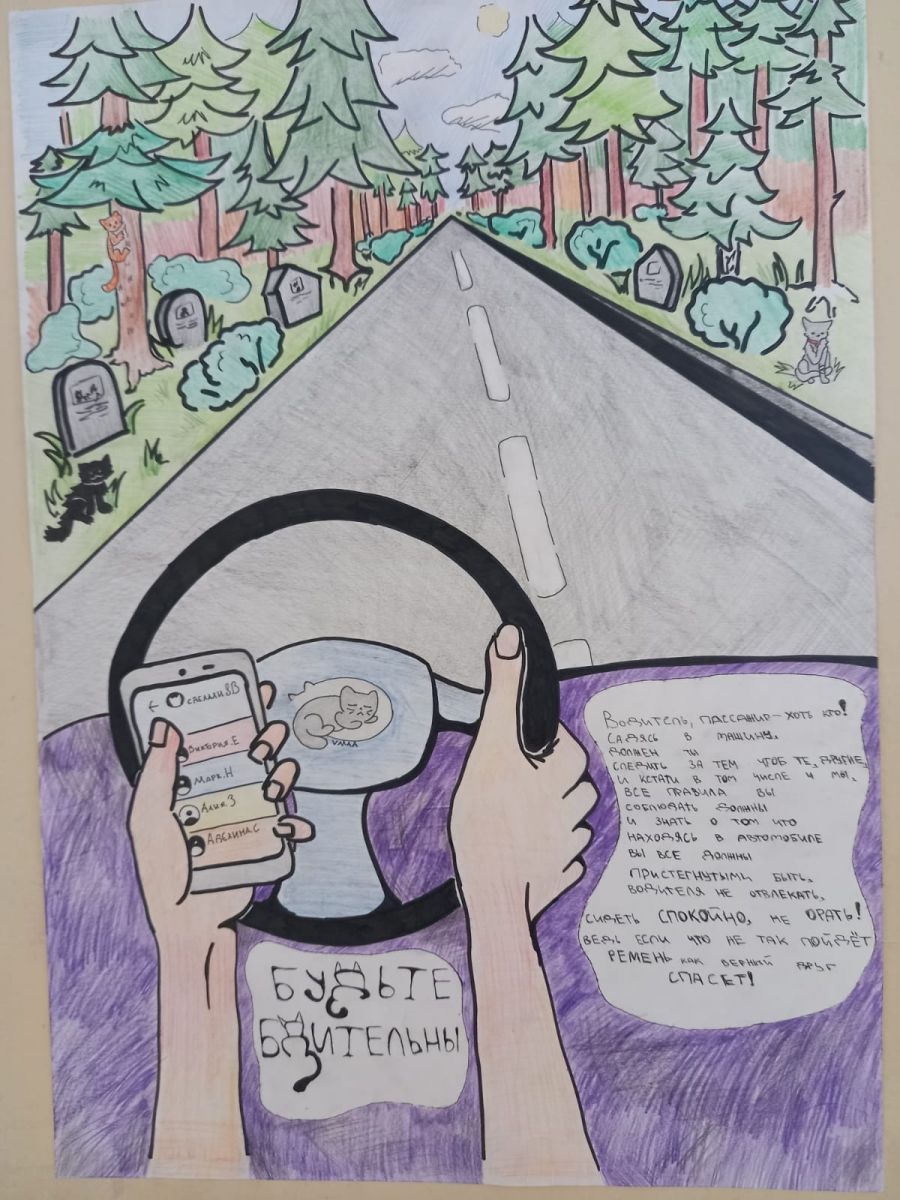 ← сделали 8В
Виктория.Е
Марк.Н
Алия.З
Аделина.С
Водитель, пассажир- хоть кто!
садясь в машину,
должен ты
следить за тем чтоб те, другие,
и кстати в том числе и мы,
все правила бы
соблюдать должны
и знать о том что
находясь в автомобиле
вы все должны
пристегнутыми быть.
водителя не отвлекать,
сидеть спокойно, не орать!
ведь если что не так пойдёт
ремень как верный друг
спасет!
Будьте
бдительны